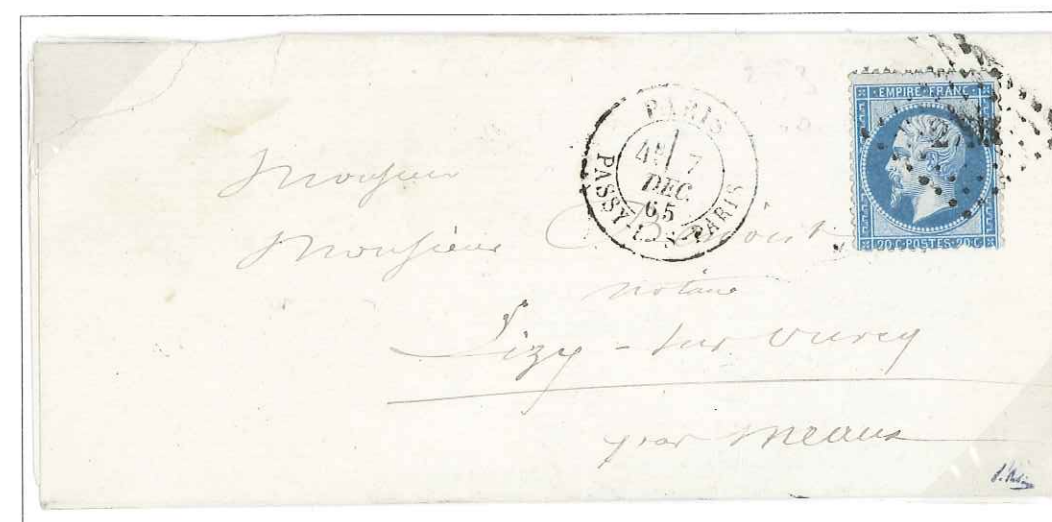 PARIS
7
DEC.
65
PASSY-LES-PARIS
EMPIRE FRANC
20 C POSTES 20 C
Monsieur
Monsieur
notaire
Lizy-sur Ourcq
par Meaux